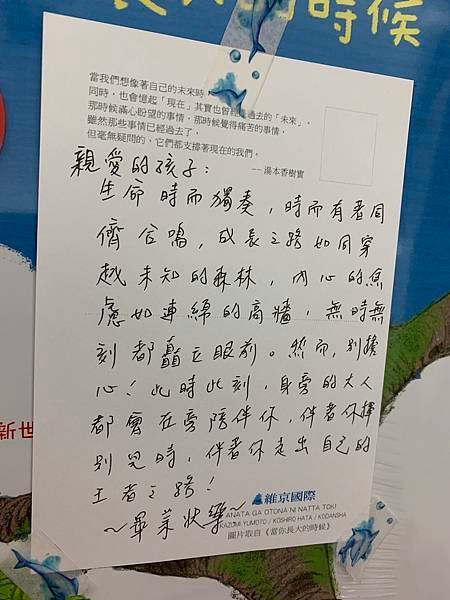 長大的時候
當我們想像著自己的未來時，
同時，也會憶起「現在」其實也曾經是過去的「未來」。
那時候滿心盼望的事情，那時候覺得痛苦的事情，
雖然那些事情已經過去了，
但毫無疑問的，它們都支撐著現在的我們。
-- 湯本香樹實
親愛的孩子：
生命時而獨奏，時而有者同
儕合鳴，成長之路如同穿
越未知的森林，內心的焦
慮如連綿的高牆，無時無
刻都矗立眼前。然而，別擔
心！此時此刻，身旁的大人
都會在旁陪伴你，伴者你揮
別兒時，伴者你走出自己的
王者之路！
~畢業快樂~
維京國際
ANATA GA OTONA NI NATTA TOKI
KAZUMI YUMOTO / KOSHIRO HATA / KODANSHA
圖片取自《當你長大的時候》